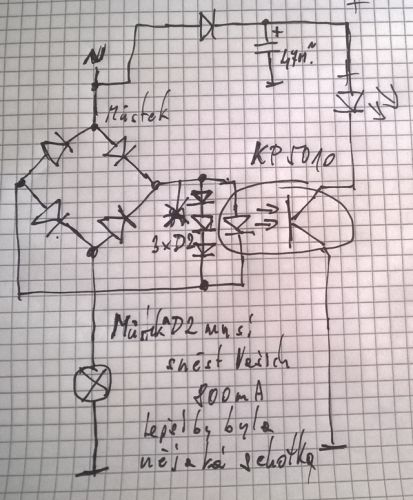 +
+
47M
Můstek
KP5010
3xD2
Můstek D2 musí
snést všech
800mA
Lepší by byla
nějaká schotka